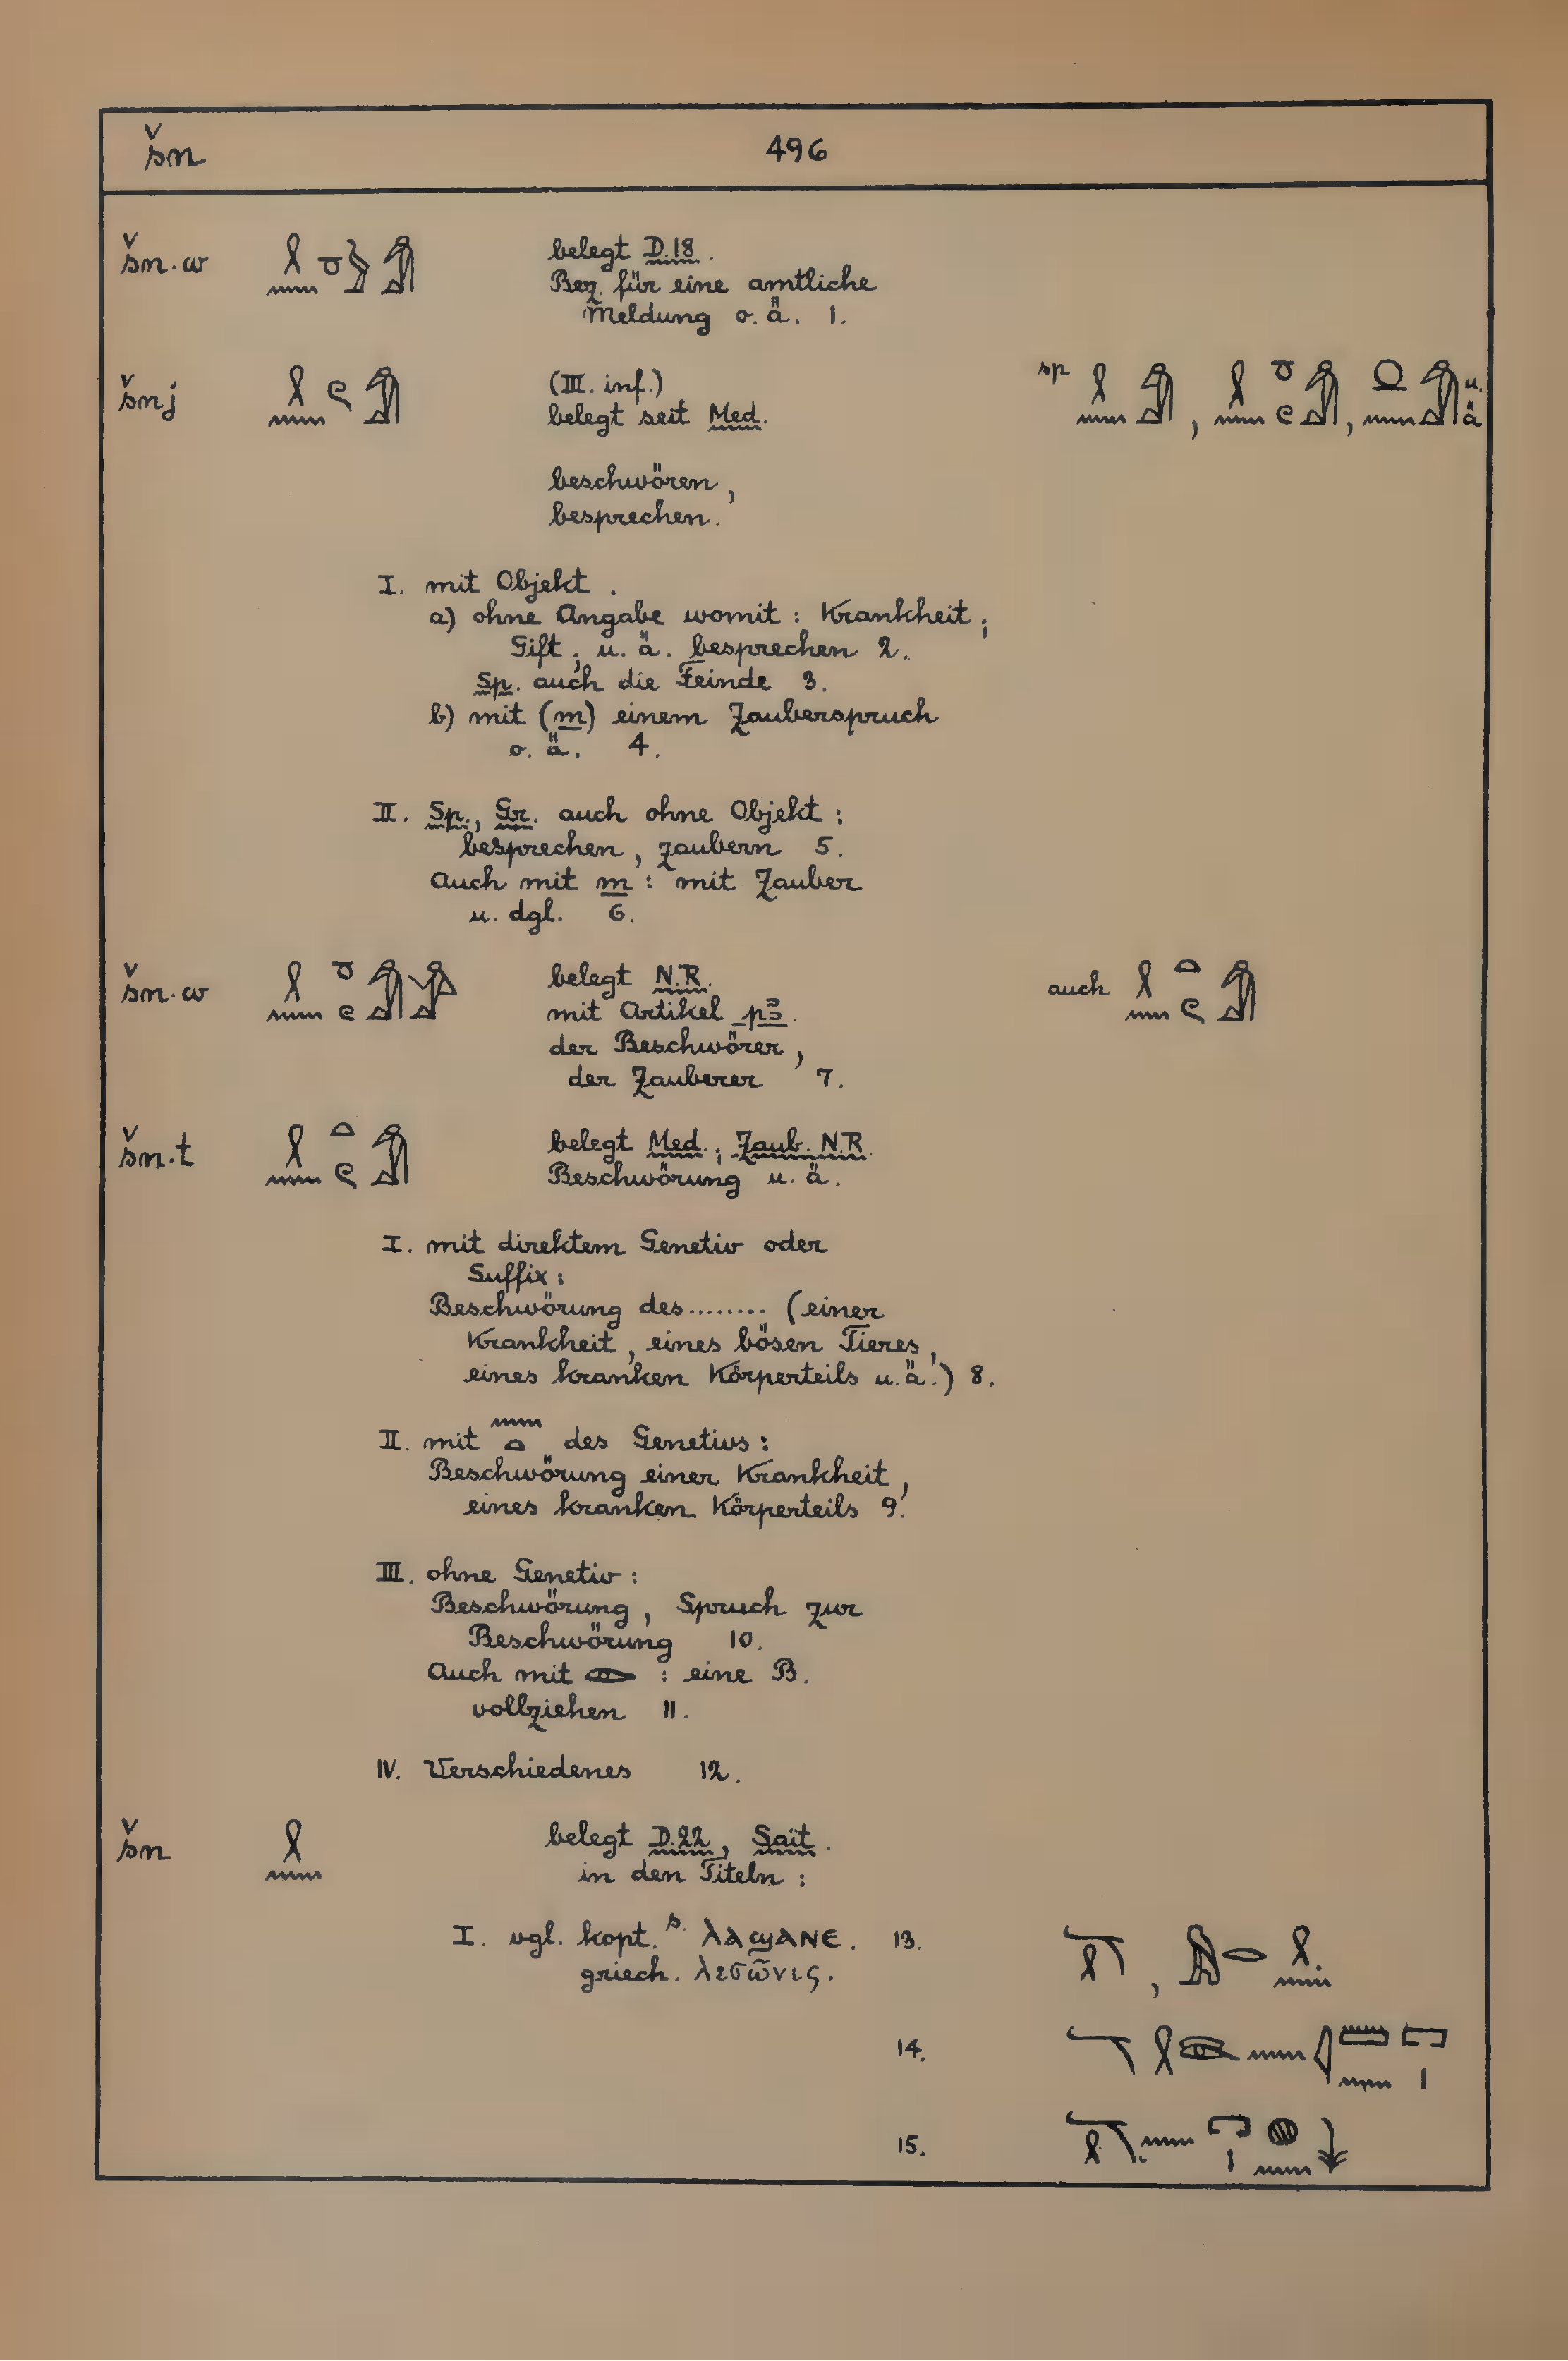 šn 496
šn·w belegt D.18.
Bez. für eine amtliche
Meldung o. ä. 1.
šnj (III. inf.) sp
belegt seit Med. , , u. ä
beschwören,
besprechen.
I. mit Objekt.
a) ohne Angabe womit: Krankheit;
Gift; u. ä. besprechen 2.
Sp. auch die Feinde 3.
b) mit (m) einem Zauberspruch
o. ä. 4.
II. Sp., Gr. auch ohne Objekt:
besprechen, zaubern 5.
Auch mit m: mit Zauber
u. dgl. 6.
šn·w belegt N.R. auch
mit Artikel pꜣ.
der Beschwörer,
der Zauberer 7.
šn·t belegt Med.; Zaub. N.R.
Beschwörung u. ä.
I. mit direktem Genetiv oder
Suffix:
Beschwörung des........ (einer
Krankheit, eines bösen Tieres,
eines kranken Körperteils u. ä.) 8.
II. mit 𓈖𓏏 des Genetivs:
Beschwörung einer Krankheit,
eines kranken Körperteils 9.
III. ohne Genetiv:
Beschwörung, Spruch zur
Beschwörung 10.
Auch mit 𓁹 : eine B.
vollziehen 11.
IV. Verschiedenes 12.
šn belegt D.22, Saït.
in den Titeln:
I. vgl. kopt. s. ⲗⲁϣⲁⲛⲉ. 13.
griech. λεσῶνις.
14.
15.